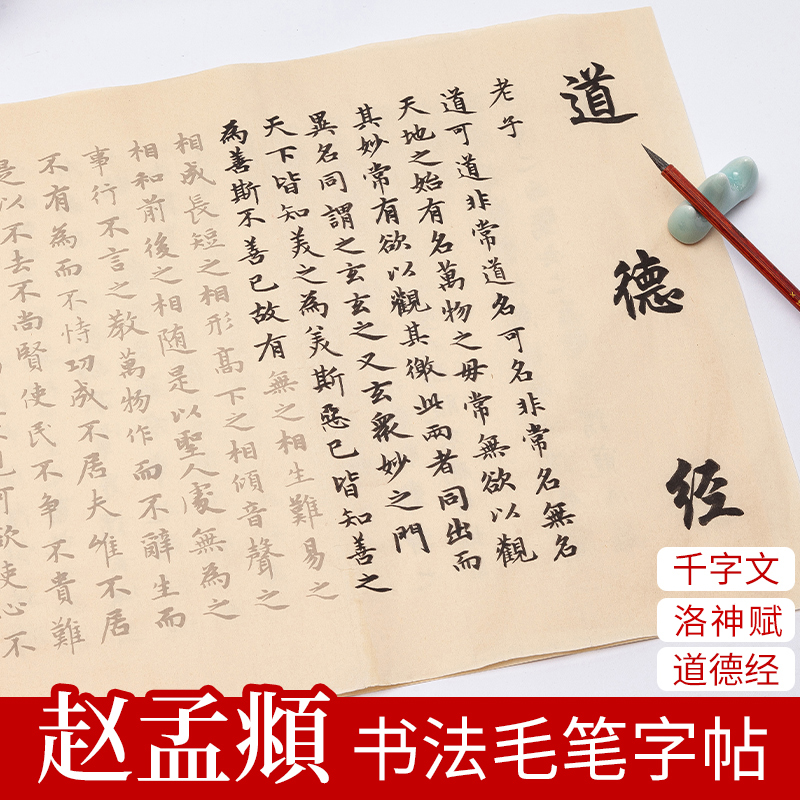 道德经
老子
道可道非常道名可名非常名無名
天地之始有名萬物之母常無欲以觀
其妙常有欲以觀其徼此兩者同出而
異名同謂之玄玄之又玄衆妙之門
天下皆知美之為美斯惡已皆知善之
為善斯不善已故有無之相生難易之
相成長短之相形高下之相傾音聲之
相和前後之相随是以聖人處無為之
事行不言之教萬物作而不辭生而
不有為而不恃功成不居夫唯不居
是以不去不尚賢使民不争不貴難
可欲使心不
千字文
洛神赋
道德经
赵孟頫 书法毛笔字帖